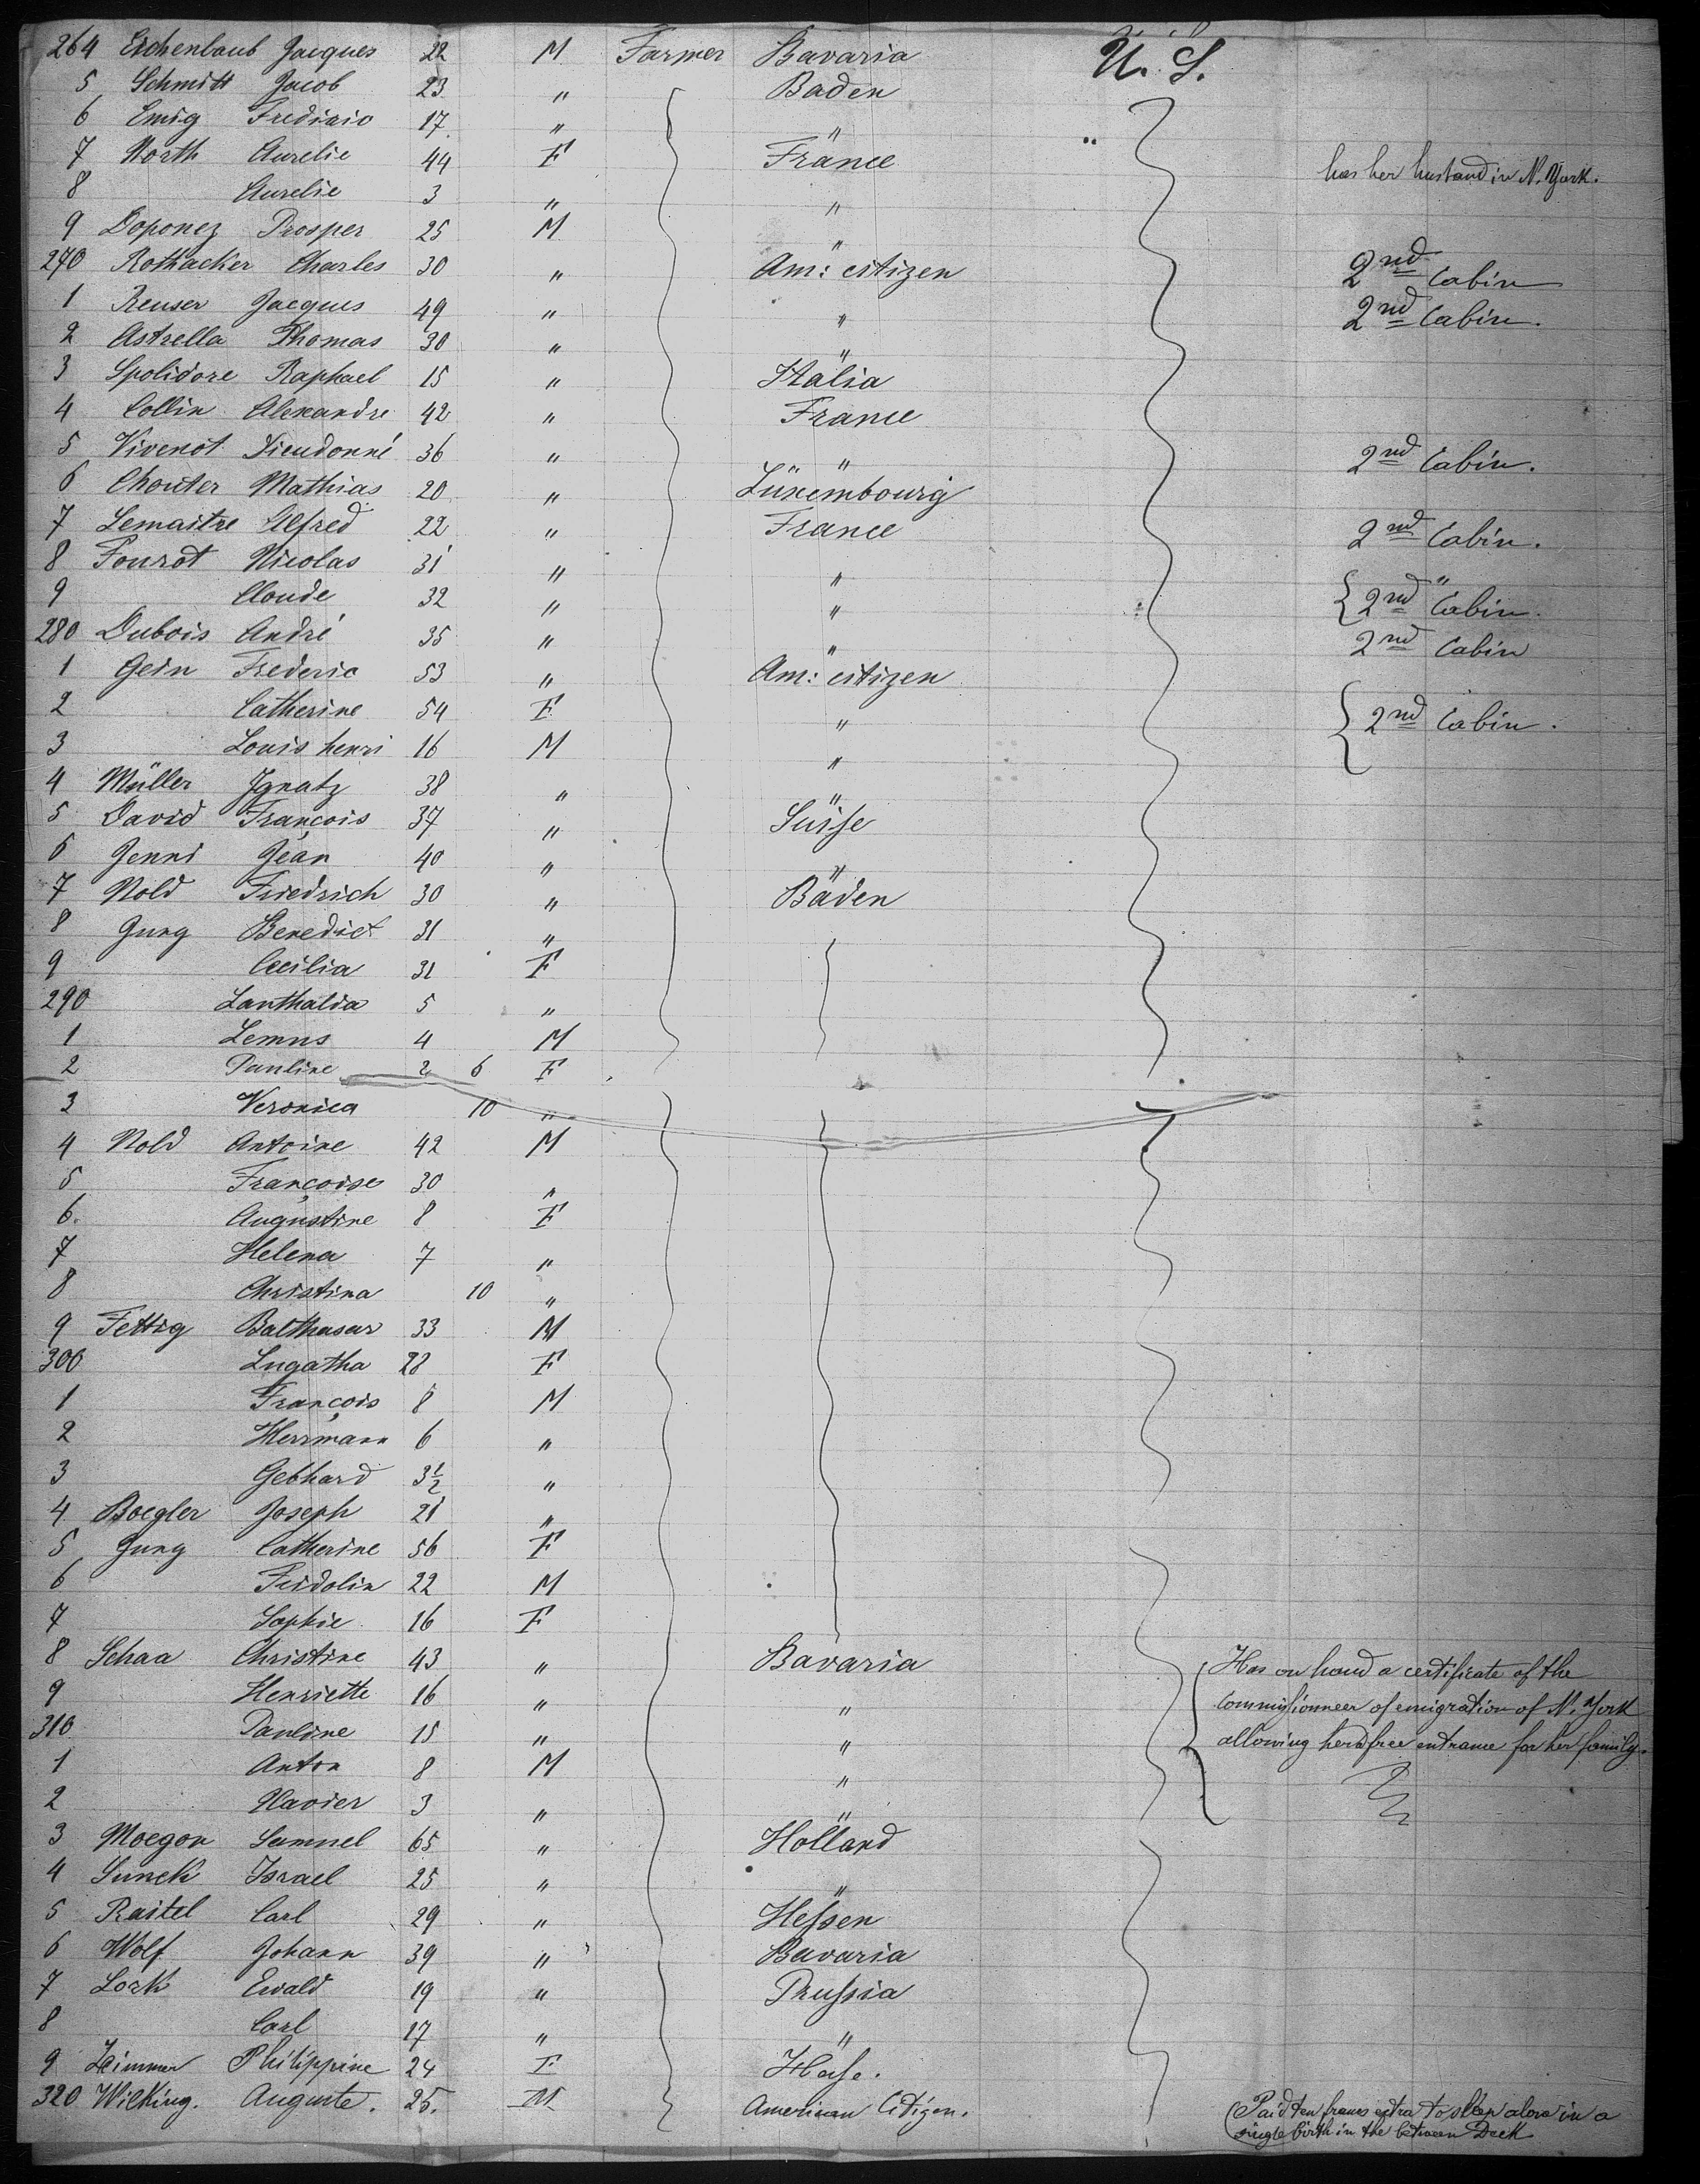 264 Eichenlaub Jacques 22 M Farmer Bavaria U. S.
5 Schmitt Jacob 23 " Baden
6 Emig 17 " "
7 North Aurelie 44 F France has her husband in N. York.
8 Aurelie 3 " "
9 Doponez Prosper 25 M "
270 Rothacker Charles 30 " Am: citizen 2nd Cabin
1 Reuser Jacques 49 " " 2nd Cabin.
2 Astrella Thomas 30 " "
3 Spolidore Raphael 15 " Italia
4 Collin Alexandre 42 " France
5 Vivenot Dieudonné 36 " " 2nd Cabin.
6 Chouter Mathias 20 " Luxembourg
7 Lemaitre Alfred 22 " France 2nd Cabin.
8 Fourot Nicolas 31 " " "
9 Claude 32 " " 2nd Cabin.
280 Dubois André 35 " " 2nd Cabin
1 Gein Frederic 53 " Am: citizen
2 Catherine 54 F " 2nd Cabin.
3 Louis henri 16 M "
4 Müller Ignatz 38 " "
5 David François 37 " Suisse
6 Jenni Jean 40 " "
7 Nold Friedrich 30 " Baden
8 Jung Benedict 31 "
9 Cecilia 31 F
290 Lanthalda 5 "
1 Lemus 4 M
2 Pauline 2 6 F
3 Veronica 10 "
4 Nold Antoine 42 M
5 Françoise 30 "
6. Augustine 8 F
7 Helena 7 "
8 Christina 10 "
9 Fettig Balthasar 33 M
300 Lugatha 28 F
1 François 8 M
2 Herrmann 6 "
3 Gebhard 3½ "
4 Boegler Joseph 21 "
5 Jung Catherine 56 F
6 Fridolin 22 M
7 Sophie 16 F
8 Schaa Christine 43 " Bavaria Has on hand a certificate of the
9 Henriette 16 " " Commissionneer of emigration of N. York
310 Pauline 15 " " allowing her free entrance for her family.
1 Anton 8 M "
2 Xavier 3 " "
3 Moegon Samuel 65 " Holland
4 Sunek Israel 25 " "
5 Raitel Carl 29 " Hessen
6 Wolf Johann 39 " Bavaria
7 Lork Ewald 19 " Prussia
8 Carl 17 " "
9 Zimmer Philippine 24 F Hesse.
320 Wilking. Auguste. 25. M American Citizen. Paid ten francs extra to sleep alone in a
single birth in the between Deck